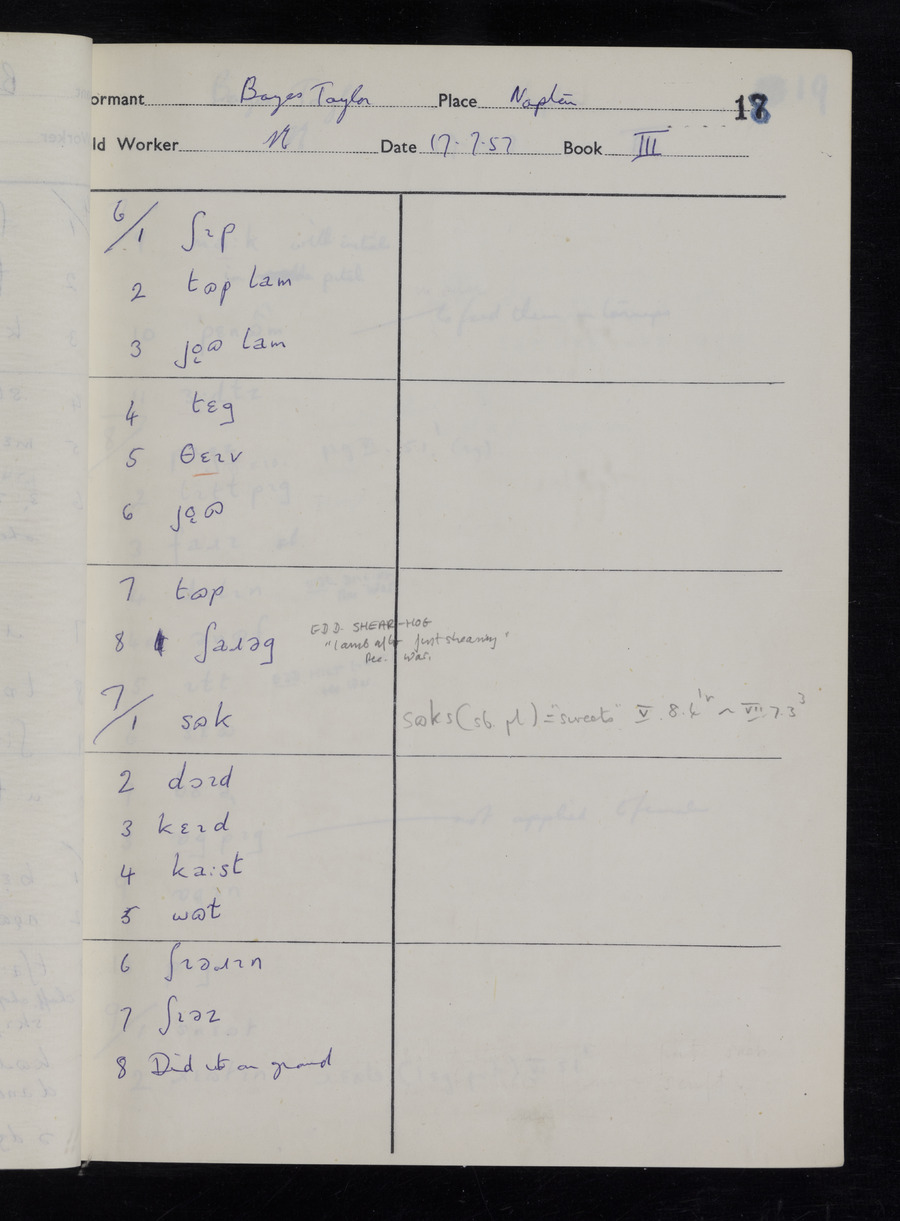 ormant Bayes Taylor Place Napton 17
ld Worker Date 17.7.57 Book III
6/1 ʃɪp
2 tɷp lam
3 jọɷ lam
4 tɛg
5 θɛɪv
6 jọɷ
7 tɷp
8 ʃaɹəg E.D.D. SHEAR-HOG
"lamb after first shearing"
Dec. War.
7/1 sɷk sɷks (sb. pl.) = "sweets" V. 8.4 ~ VII. 7.3
2 dɔɪd
3 kɛɪd
4 kaːst
5 wɷt
6 ʃɪəɹɪn
7 ʃɪəz
8 Did it on ground